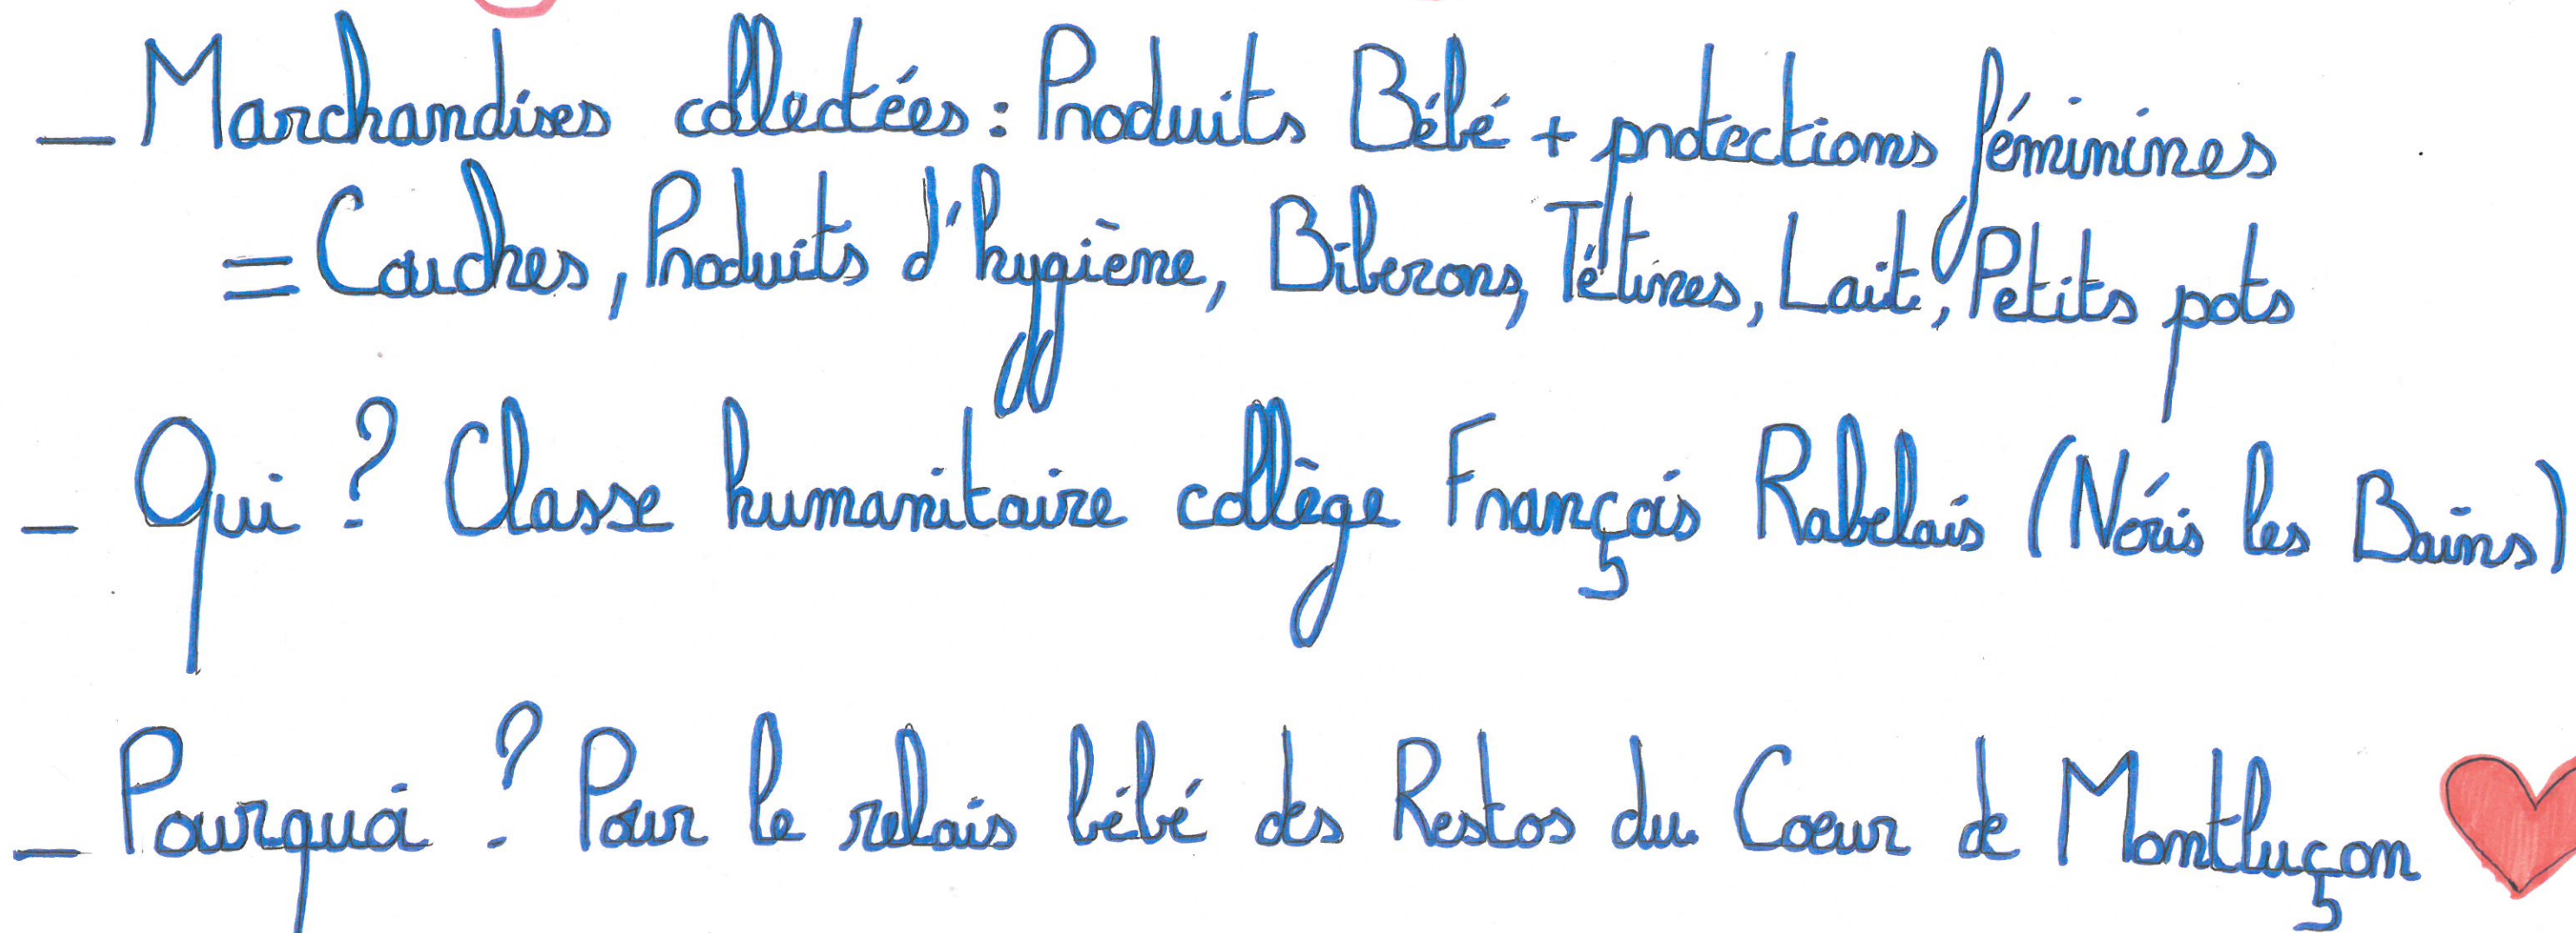 _ Marchandises collectées : Produits Bébé + protections féminines
= Couches, Produits d'hygiène, Biberons, Tétines, Lait, Petits pots
_ Qui ? Classe humanitaire collège François Rabelais (Néris les Bains)
_ Pourquoi ? Pour le relais bébé des Restos du Coeur de Montluçon